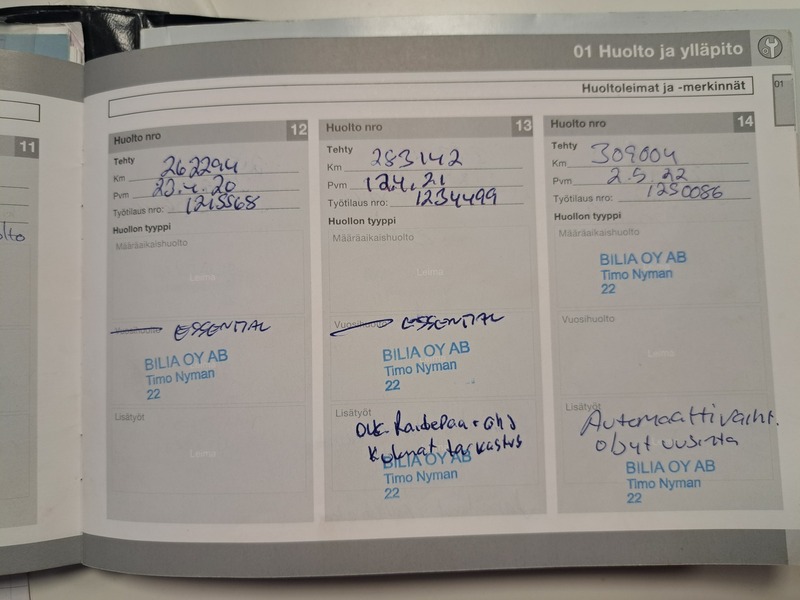 01 Huolto ja ylläpito
Huoltoleimat ja -merkinnät
01
11
12
Huolto nro
Tehty
Km 262294
Pvm 22.4.20
Työtilaus nro: 1215568
Huollon tyyppi
Määräaikaishuolto
Leima
Vuosihuolto ESSENTIAL
BILIA OY AB
Timo Nyman
22
Lisätyöt
Leima
13
Huolto nro
Tehty
Km 283142
Pvm 12.4.21
Työtilaus nro: 1234499
Huollon tyyppi
Määräaikaishuolto
Leima
Vuosihuolto ESSENTIAL
BILIA OY AB
Timo Nyman
22
Lisätyöt
tarkastus
BILIA OY AB
Timo Nyman
22
14
Huolto nro
Tehty
Km 309004
Pvm 2.5.22
Työtilaus nro: 1250086
Huollon tyyppi
Määräaikaishuolto
BILIA OY AB
Timo Nyman
22
Vuosihuolto
Leima
Lisätyöt
Automaattivaiht.
öljyt uusinta
BILIA OY AB
Timo Nyman
22